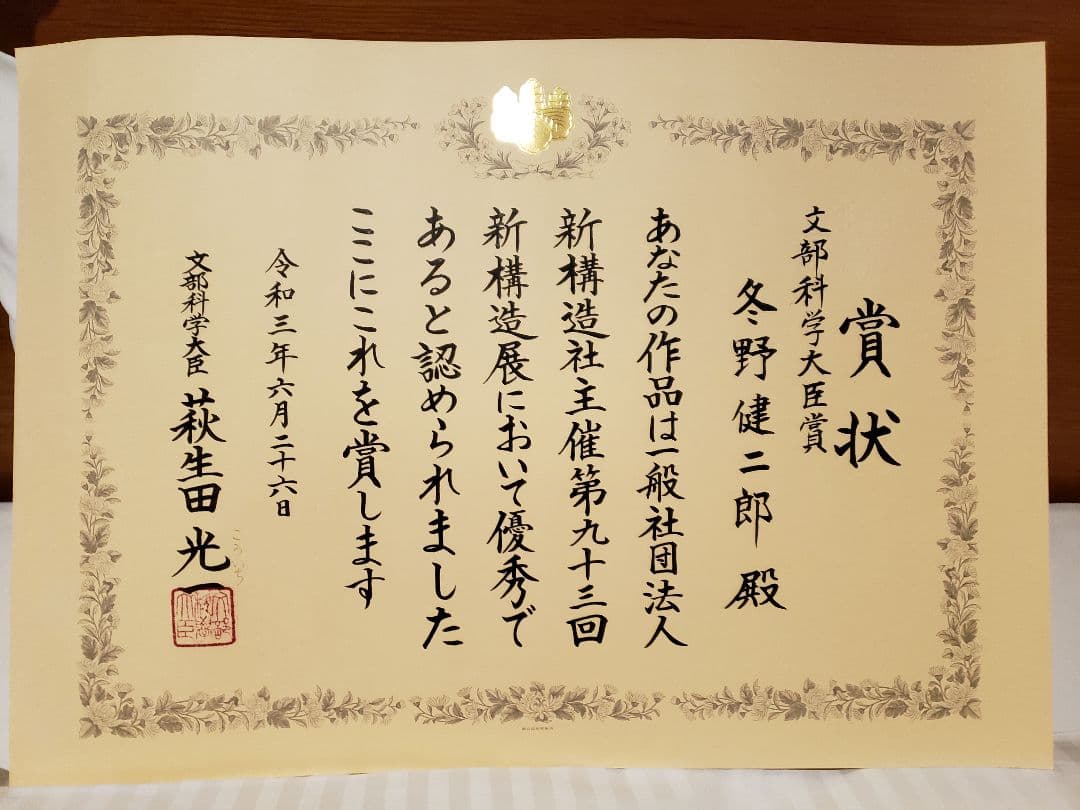 賞状
文部科学大臣賞
冬野健二郎殿
あなたの作品は一般社団法人
新構造社主催第九十三回
新構造展において優秀で
あると認められました
ここにこれを賞します
令和三年六月二十六日
文部科学大臣 萩生田光一